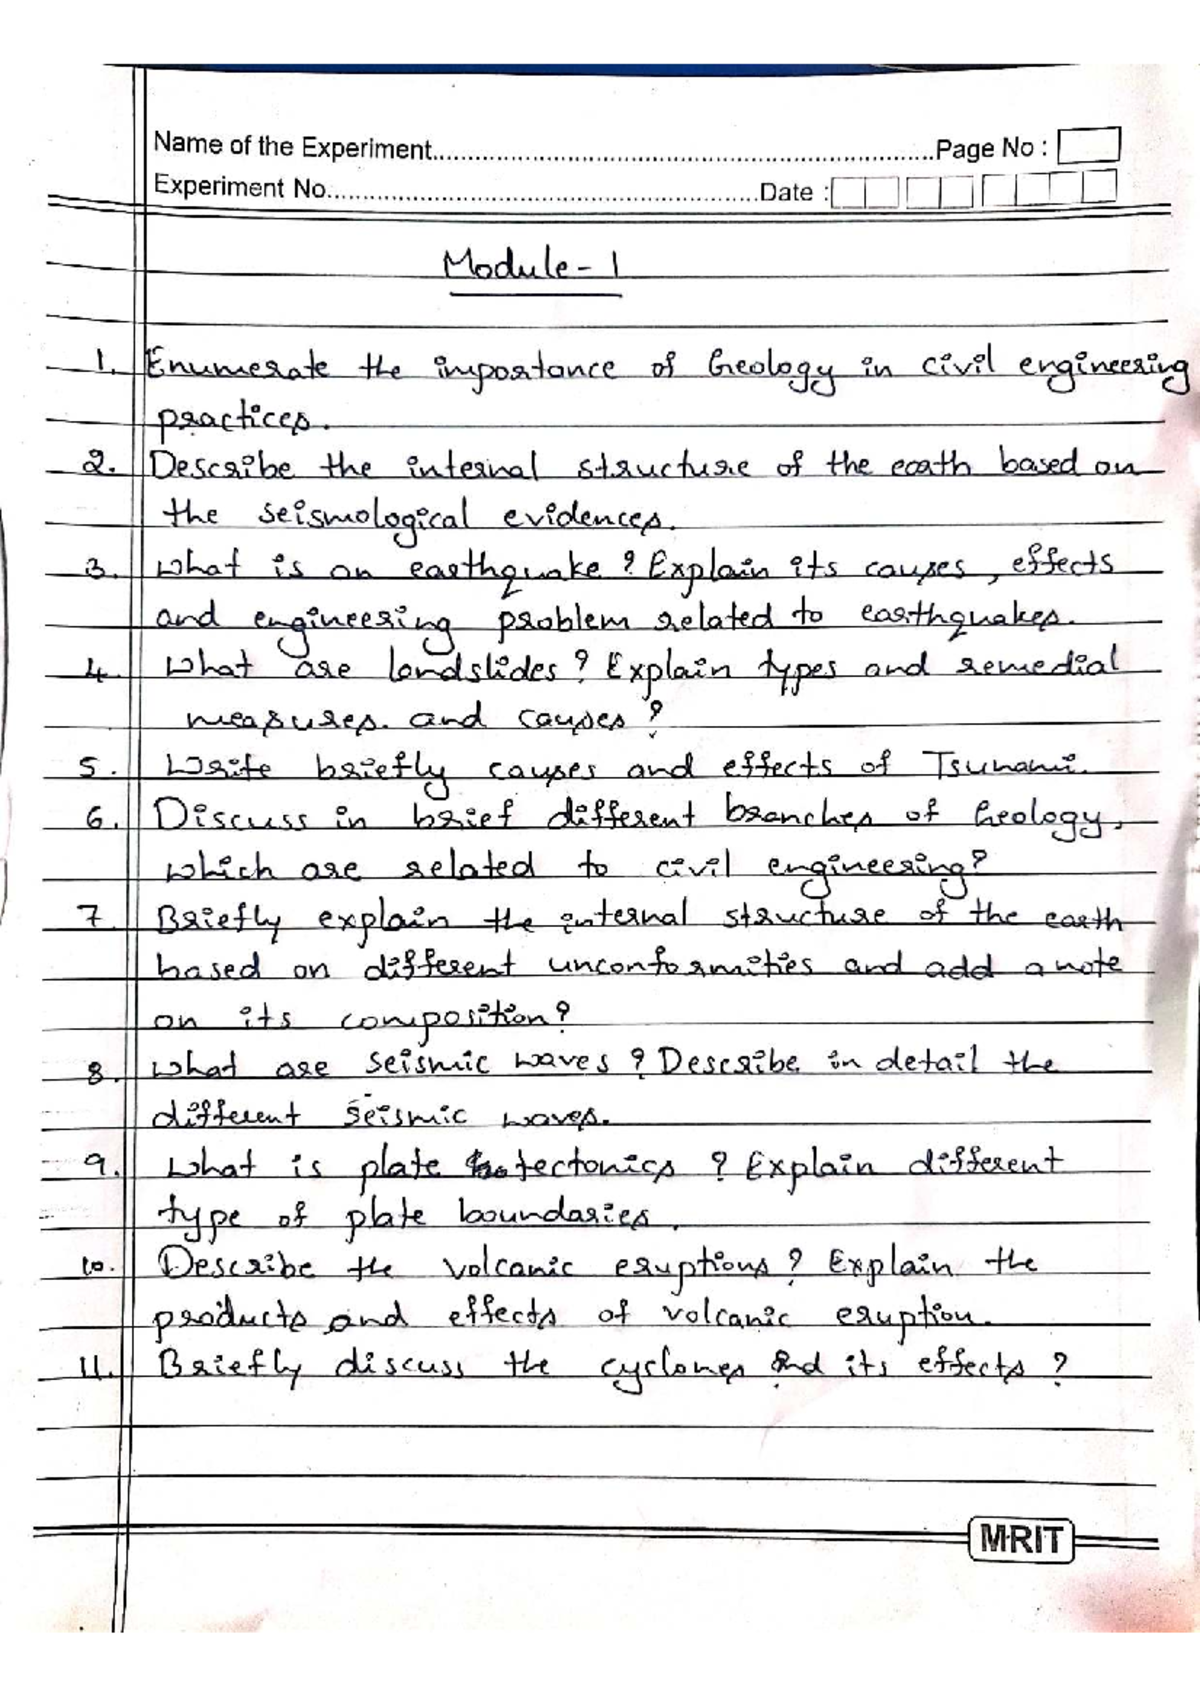 Name of the Experiment..........Page No :
Experiment No..........Date :
Module - 1
1. Enumerate the importance of Geology in civil engineering
practices.
2. Describe the internal structure of the earth based on
the seismological evidences.
3. What is an earthquake ? Explain its causes, effects
and engineering problem related to earthquakes.
4. What are landslides ? Explain types and remedial
measures. and causes ?
5. Write briefly causes and effects of Tsunami.
6. Discuss in brief different branches of Geology,
which are related to civil engineering?
7. Briefly explain the internal structure of the earth
based on different unconformities and add a note
on its composition?
8. What are seismic waves ? Describe in detail the
different seismic waves.
9. What is plate tectonics ? Explain different
type of plate boundaries.
10. Describe the volcanic eruptions ? Explain the
products and effects of volcanic eruption.
11. Briefly discuss the cyclones and its effects ?
MRIT